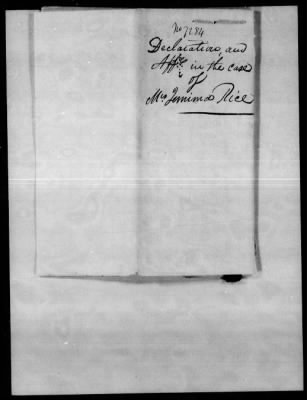 No 7284
Declaration, and
Affts in the case
of
Mrs Jemima Rice